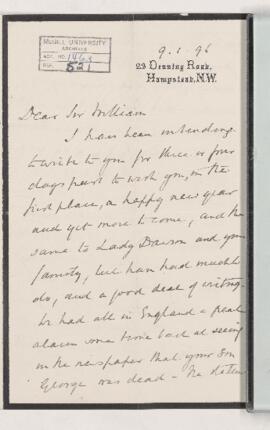 McGILL UNIVERSITY
ARCHIVES
ACC. NO. 1463
REF. 521
9. 1. 96
29 Denning Road,
Hampstead, N.W.
Dear Sir William
I have been intending
to write to you for three or four
days past to wish you, in the
first place, a happy new year
and yet more to come, and the
same to Lady Dawson and your
family, but have had much to
do, and a good deal of writing.
We had all in England a great
alarm some time back at seeing
in the newspaper that your son
George was dead - the